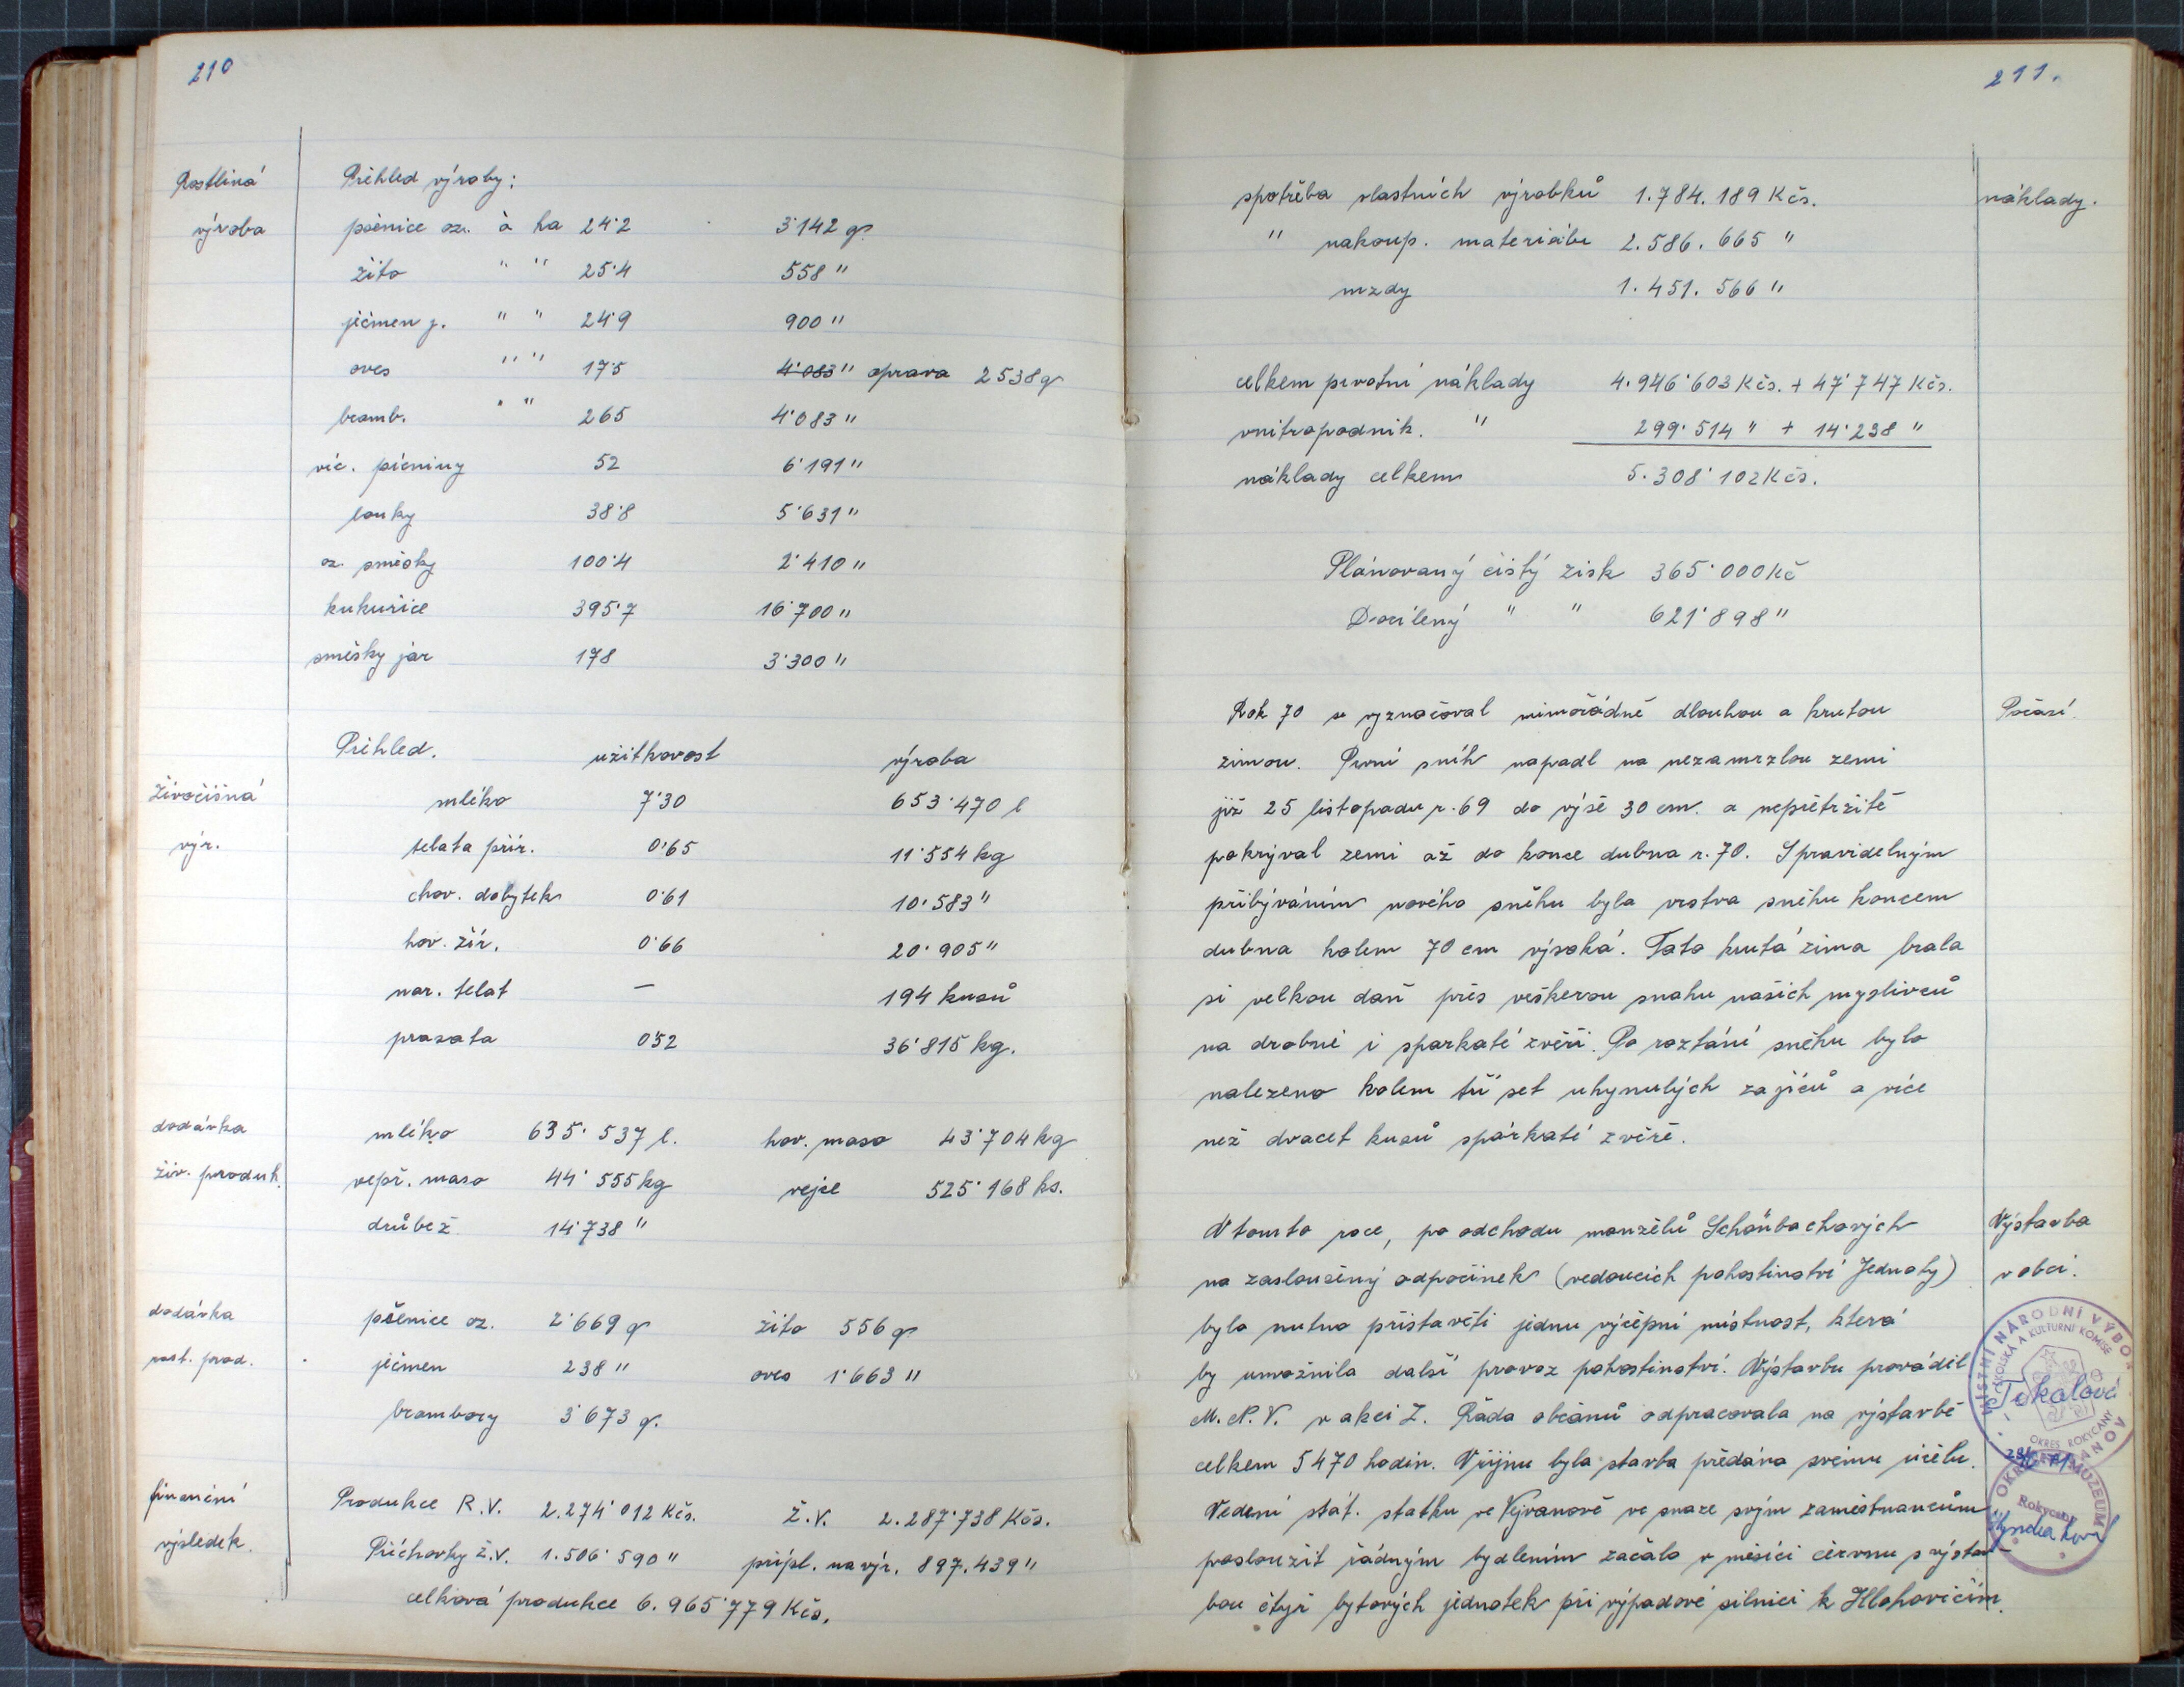 210
Rostliná
výroba
Přehled výroby:
pšenice oz. à ha 24˙2 3˙142 q
žito " " 25˙4 558 "
ječmen j. " " 24˙9 900 "
oves " " 17˙5 4˙083 " oprava 2538 q
bramb. " " 265 4˙083 "
víc. pícniny 52 6˙191 "
louky 38˙8 5˙631 "
oz. směsky 100˙4 2˙410 "
kukuřice 395˙7 16˙700 "
směsky jar 178 3˙300 "
Živočišná
výr.
Přehled. užitkovost výroba
mléko 7˙30 653˙470 l
telata přír. 0˙65 11˙554 kg
chov. dobytek 0˙61 10˙583 "
hov. žír. 0˙66 20˙905 "
nar. telat — 194 kusů
prasata 0˙52 36˙815 kg.
dodávka
živ. produk.
mléko 635˙537 l. hov. maso 43˙704 kg
vepř. maso 44˙555 kg vejce 525˙168 ks.
drůbež 14˙738 "
dodávka
rost. prod.
pšenice oz. 2˙669 q žito 556 q
ječmen 238 " oves 1˙663 "
brambory 3˙673 q.
finanční
výsledek.
Produkce R.V. 2.274˙012 Kčs. Ž.V. 2.287˙738 Kčs.
Příchovky ž.v. 1.506˙590 " přípl. na výr. 897.439 "
celková produkce 6.965˙779 Kčs.
211.
náklady.
spotřeba vlastních výrobků 1.784.189 Kčs.
" nakoup. materiálu 2.586.665 "
mzdy 1.451.566 "
celkem prvotní náklady 4.946˙603 Kčs. + 47˙747 Kčs.
vnitropodnik. " 299˙514 " + 14˙238 "
náklady celkem 5.308˙102 Kčs.
Plánovaný čistý zisk 365˙000 Kč
Docílený " " 621˙898 "
Počasí.
Rok 70 se vyznačoval mimořádně dlouhou a krutou
zimou. První sníh napadl na nezamrzlou zemi
již 25 listopadu r. 69 do výše 30 cm. a nepřetržitě
pokrýval zemi až do konce dubna r. 70. S pravidelným
přibýváním nového sněhu byla vrstva sněhu koncem
dubna kolem 70 cm vysoká. Tato krutá zima brala
si velkou daň přes veškerou snahu našich myslivců
na drobné i spárkaté zvěři. Po roztání sněhu bylo
nalezeno kolem tří set uhynulých zajíců a více
než dvacet kusů spárkaté zvěře.
Výstavba
v obci.
V tomto roce, po odchodu manželů Schönbachových
na zasloužený odpočinek (vedoucích pohostinství Jednoty)
bylo nutno přistavěti jednu výčepní místnost, která
by umožnila další provoz pohostinství. Výstavbu prováděl
M.N.V. v akci Z. Řada občanů odpracovala na výstavbě
celkem 5470 hodin. V říjnu byla stavba předána svému účelu.
Vedení stát. statku ve Vejvanově ve snaze svým zaměstnancům
posloužit řádným bydlením začalo v měsíci červnu s výstav-
bou čtyř bytových jednotek při výpadové silnici k Hlohovičím.
MÍSTNÍ NÁRODNÍ VÝBOR
ŠKOLSKÁ A KULTURNÍ KOMISE
OKRES ROKYCANY
MUZEUM
Rokycany